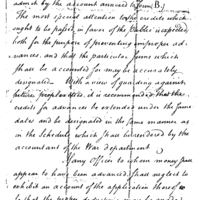 admit by the account annexed to form B.)
The most special attention to the credits which
ought to be passed in favor of the Public is expected
both for the purpose of preventing improper ad-
vances, and that the particular forms which
shall be accounted for may be accurately
designated. With a view of guarding against
future, it is recommended that the
credits for advances be extended under the same
dates and be designated in the same manner as
in the Schedule which shall be rendered by the
accountant of the War department.
If any officer to whom money
appear to have been advanced shall neglect to
exhibit an account of the application thereof
to that the